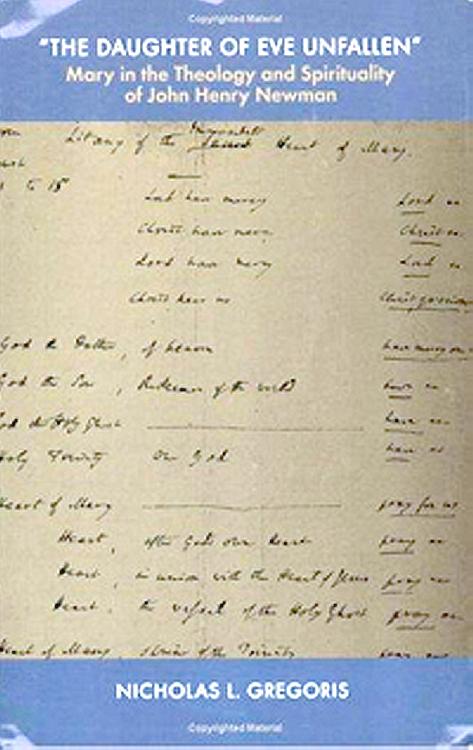 Copyrighted Material
"THE DAUGHTER OF EVE UNFALLEN"
Mary in the Theology and Spirituality
of John Henry Newman
Litany of the Immaculate Heart of Mary.
to 15th
Lord have mercy Lord
Christ have mercy Christ
Lord have mercy Lord
Christ hear us Christ graciously
God the Father, of heaven have mercy on
God the Son, Redeemer of the world have
God the Holy Ghost have
Holy Trinity one God have
Heart of Mary pray for us
Heart, after God's own heart pray
Heart, in union with the Heart of Jesus pray
Heart, the vessel of the Holy Ghost pray
Heart of Mary, shrine of the Trinity pray
NICHOLAS L. GREGORIS
Copyrighted Material